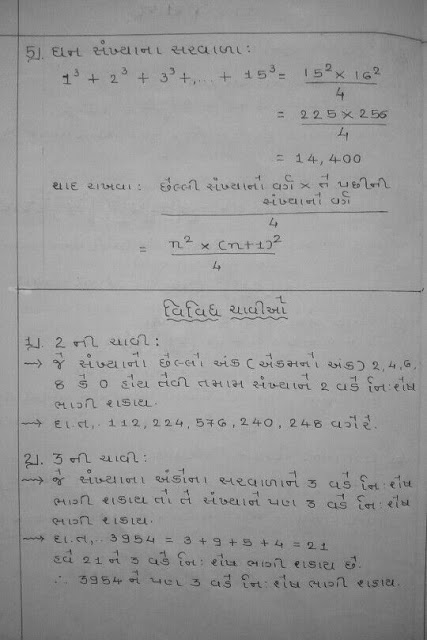 5) ઘન સંખ્યાના સરવાળા :
1³ + 2³ + 3³ +,... + 15³ = 15² × 16² / 4
= 225 × 256 / 4
= 14,400
યાદ રાખવા : છેલ્લી સંખ્યાનો વર્ગ × તે પછીની
સંખ્યાનો વર્ગ
4
= n² × (n+1)² / 4
વિવિધ ચાવીઓ
1) 2 ની ચાવી :
→ જે સંખ્યાનો છેલ્લો અંક (એકમનો અંક) 2,4,6,
8 કે 0 હોય તેવી તમામ સંખ્યાને 2 વડે નિ:શેષ
ભાગી શકાય.
→ દા.ત., 112, 224, 576, 240, 248 વગેરે.
2) 3 ની ચાવી :
→ જે સંખ્યાના અંકોના સરવાળાને 3 વડે નિ:શેષ
ભાગી શકાય તો તે સંખ્યાને પણ 3 વડે નિ:શેષ
ભાગી શકાય.
→ દા.ત,. 3954 = 3 + 9 + 5 + 4 = 21
હવે 21 ને 3 વડે નિ:શેષ ભાગી શકાય છે.
∴ 3954 ને પણ 3 વડે નિ:શેષ ભાગી શકાય.